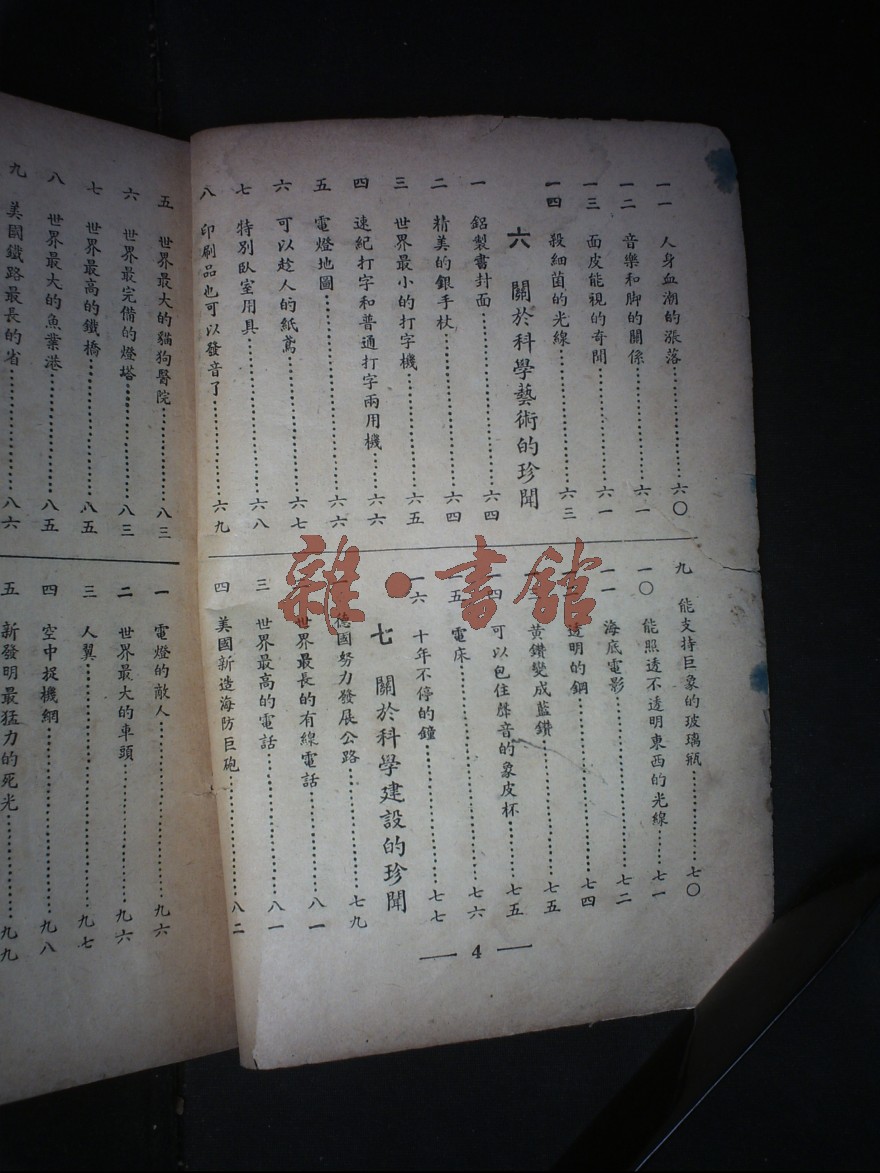 一一 人身血潮的漲落……六〇
一二 音樂和脚的關係……六一
一三 面皮能視的奇聞……六一
一四 殺細菌的光線……六三
六 關於科學藝術的珍聞
一 鋁製書封面……六四
二 精美的銀手杖……六四
三 世界最小的打字機……六五
四 速紀打字和普通打字兩用機……六六
五 電燈地圖……六六
六 可以趁人的紙鳶……六七
七 特別臥室用具……六八
八 印刷品也可以發音了……六九
九 能支持巨象的玻璃瓶……七〇
一〇 能照透不透明東西的光線……七一
一一 海底電影……七二
透明的鋼……七四
黃鑽變成藍鑽……七五
一四 可以包住聲音的象皮杯……七五
一五 電床……七六
一六 十年不停的鐘……七七
七 關於科學建設的珍聞
德國努力發展公路……七九
世界最長的有線電話……八一
三 世界最高的電話……八一
四 美國新造海防巨砲……八二
— 4 —
五 世界最大的貓狗醫院……八三
六 世界最完備的燈塔……八三
七 世界最高的鐵橋……八五
八 世界最大的魚業港……八五
九 美國鐵路最長的省……八六
一 電燈的敵人……九六
二 世界最大的車頭……九六
三 人翼……九七
四 空中捉機網……九八
五 新發明最猛力的死光……九九
雜·書館